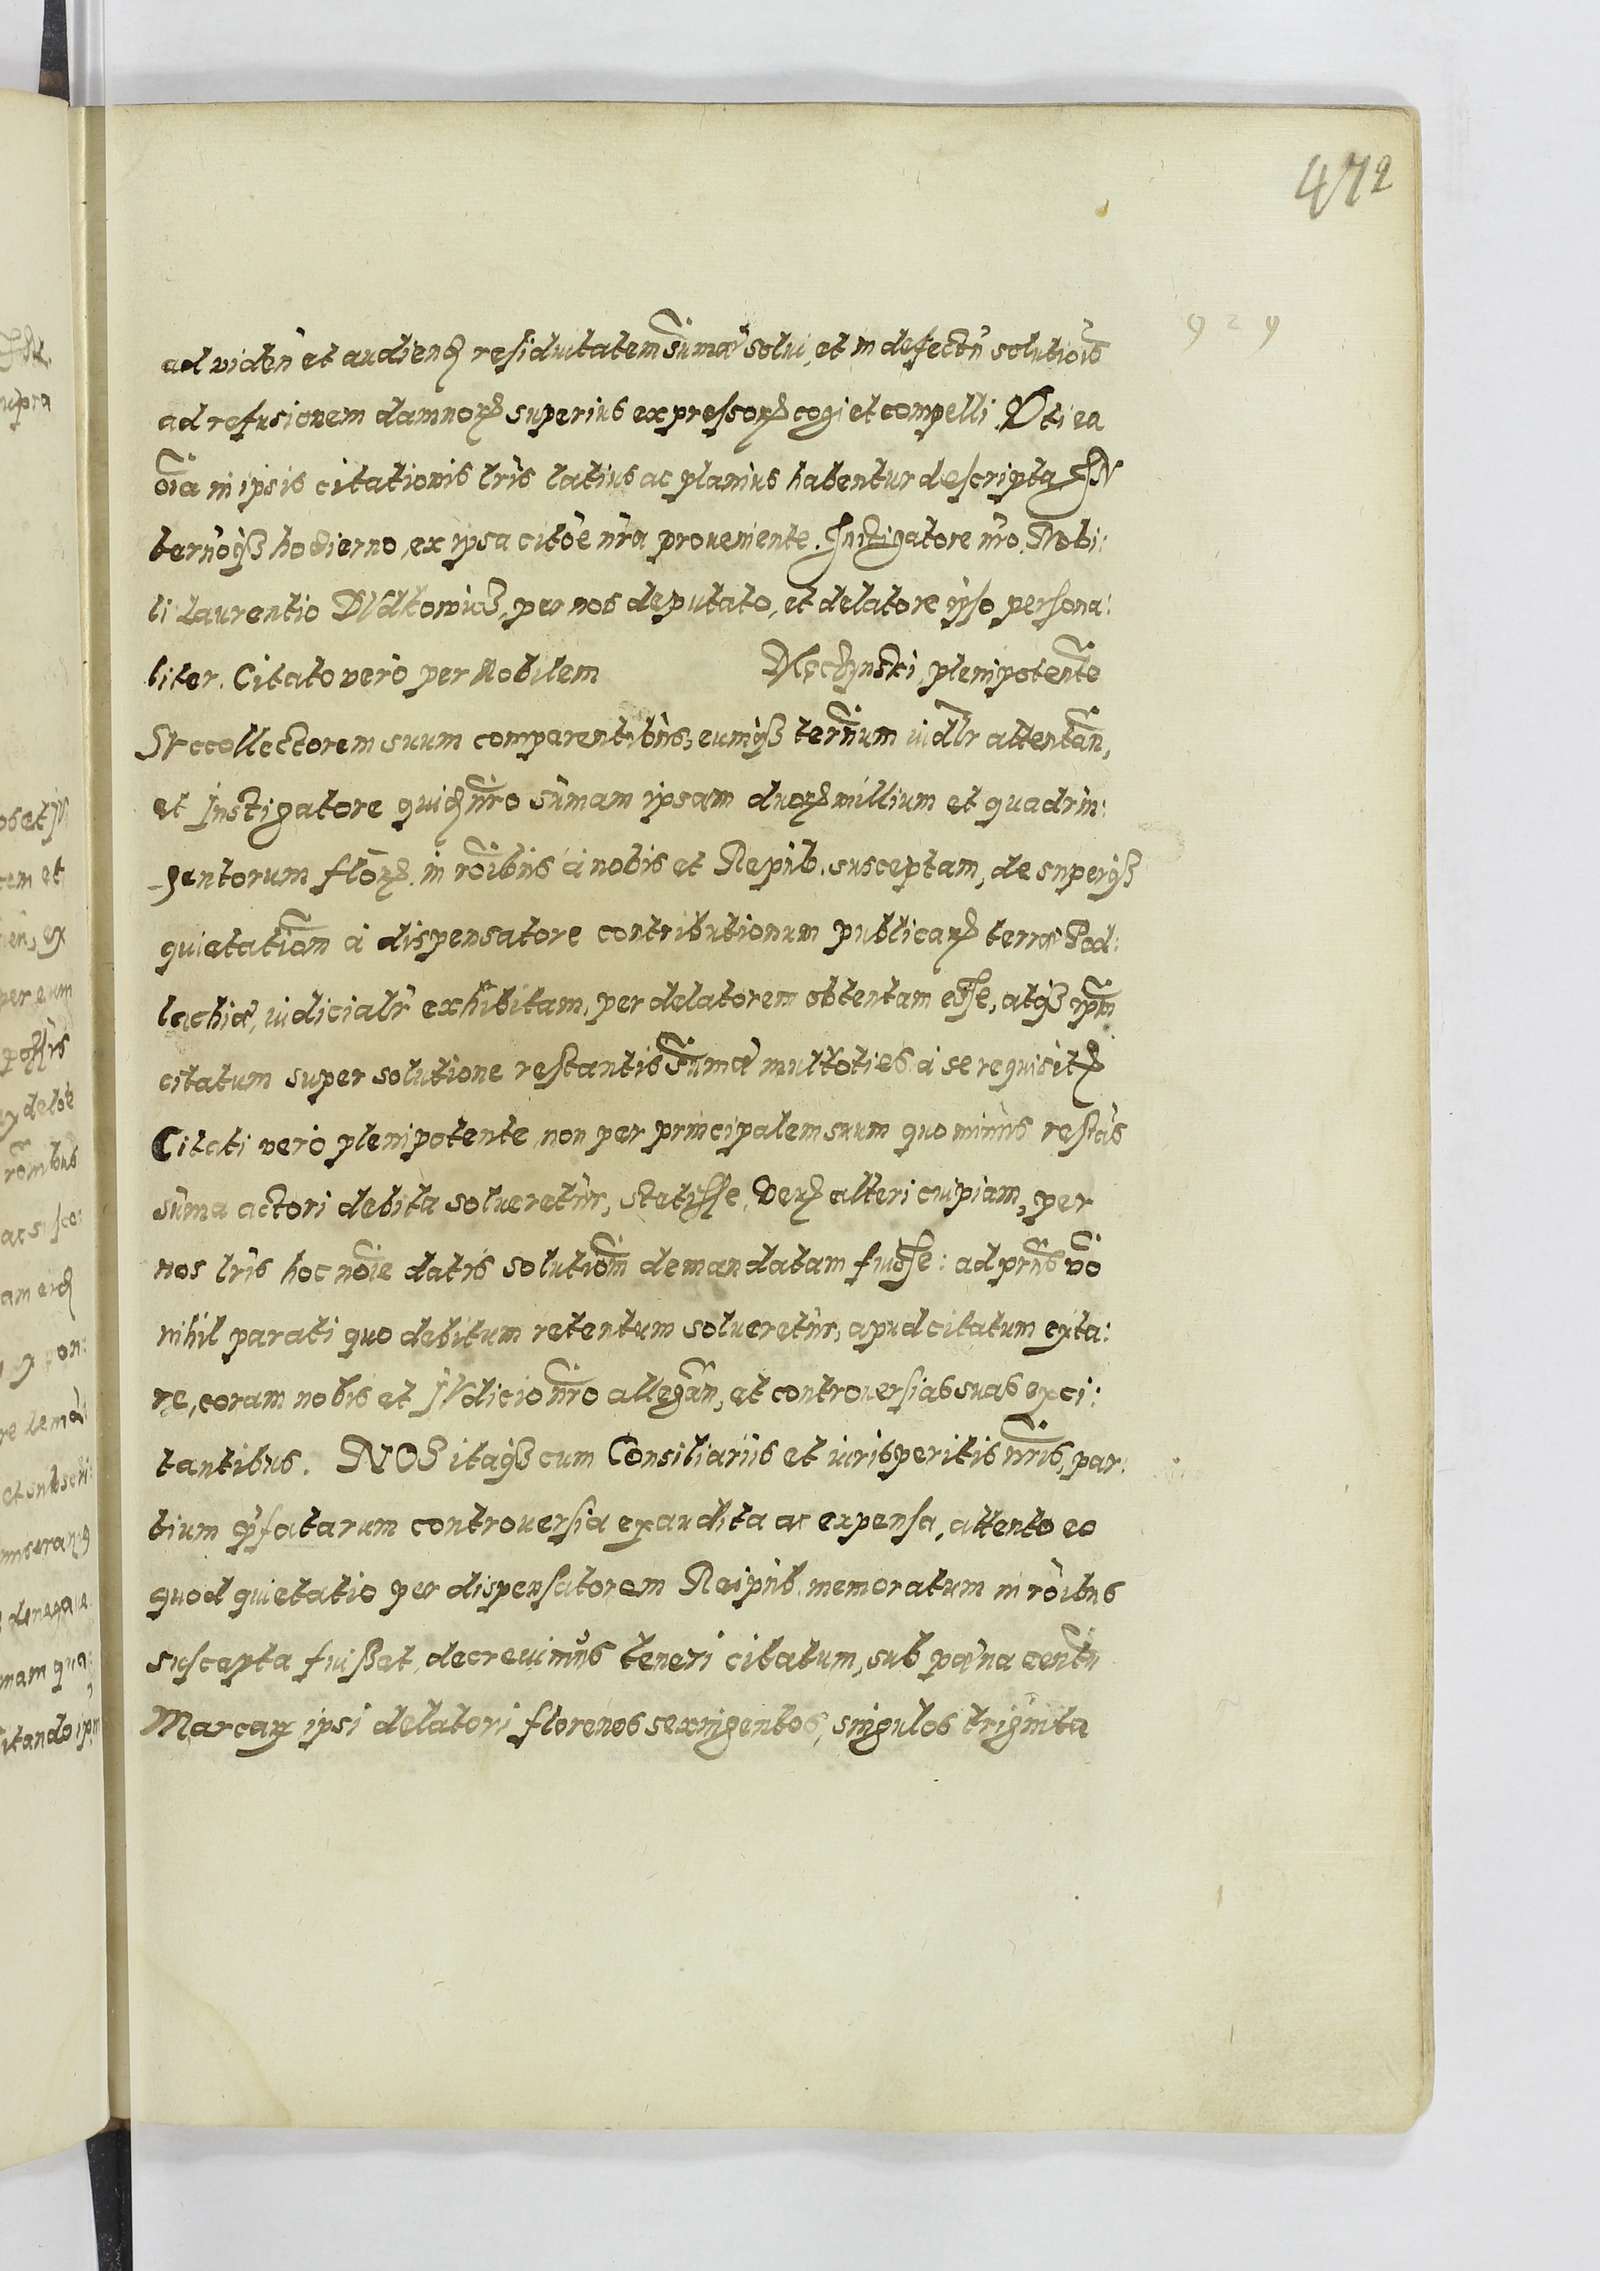 472
929
ad videñ et audienđ residuitatem sum̃æ solui, et in defectũ solutiõis
ad refusionem damnoꝝ superius expressoꝝ cogi et compelli. Vti ea
õia in ipsis citationis lr̃is latius ac planius habentur descripta. IN
ter̃noqꝫ hodierno, ex ipsa citõe nr̃a proueniente. Instigatore nr̃o Nobi:
li Laurentio per nos deputato, et delatore ipso persona:
liter. Citato verò per Nobilem Męczynski, plenipotent̃e
Succollectorem suum comparentibus, eumqꝫ ter̃num iudlr̃ attentañ,
et Instigatore quiđ nr̃o sum̃am ipsam duoꝝ millium et quadrin:
gentorum flõꝝ. in rõibus à nobis et Repub. susceptam, desuperqꝫ
quietatiõm à dispensatore contributionum publicaꝝ terræ Pod:
lachiæ, iudicialr̃ exhibitam, per delatorem obtentam esse, atqꝫ ip̃m
citatum super solutione restantis sum̃æ multoties à se requisitꝝ
Citati verò plenipotente, non per principalem suum quo minus restãs
sum̃a actori debita solueretur, stetisse, Veꝝ alteri cuipiam, per
nos lr̃is hoc noĩe datis solutiõm demandatam fuisse: ad pr̃ns võ
nihil parati quo debitum retentum solueretur, apud citatum exta:
re, coram nobis et IVdicio nr̃o allegañ, et controuersias suas exci:
tantibus. NOS itaqꝫ cum Consiliariis et iurisperitis nr̃is, par:
tium p̃fatarum controuersia exaudita ac expensa, attento eo
quod quietatio per dispensatorem Reipub. memoratum in rõibus
suscepta fuisset, decreuimus teneri citatum, sub pœna centũ
Marcaꝝ ipsi delatori florenos sexingentos, singulos triginta